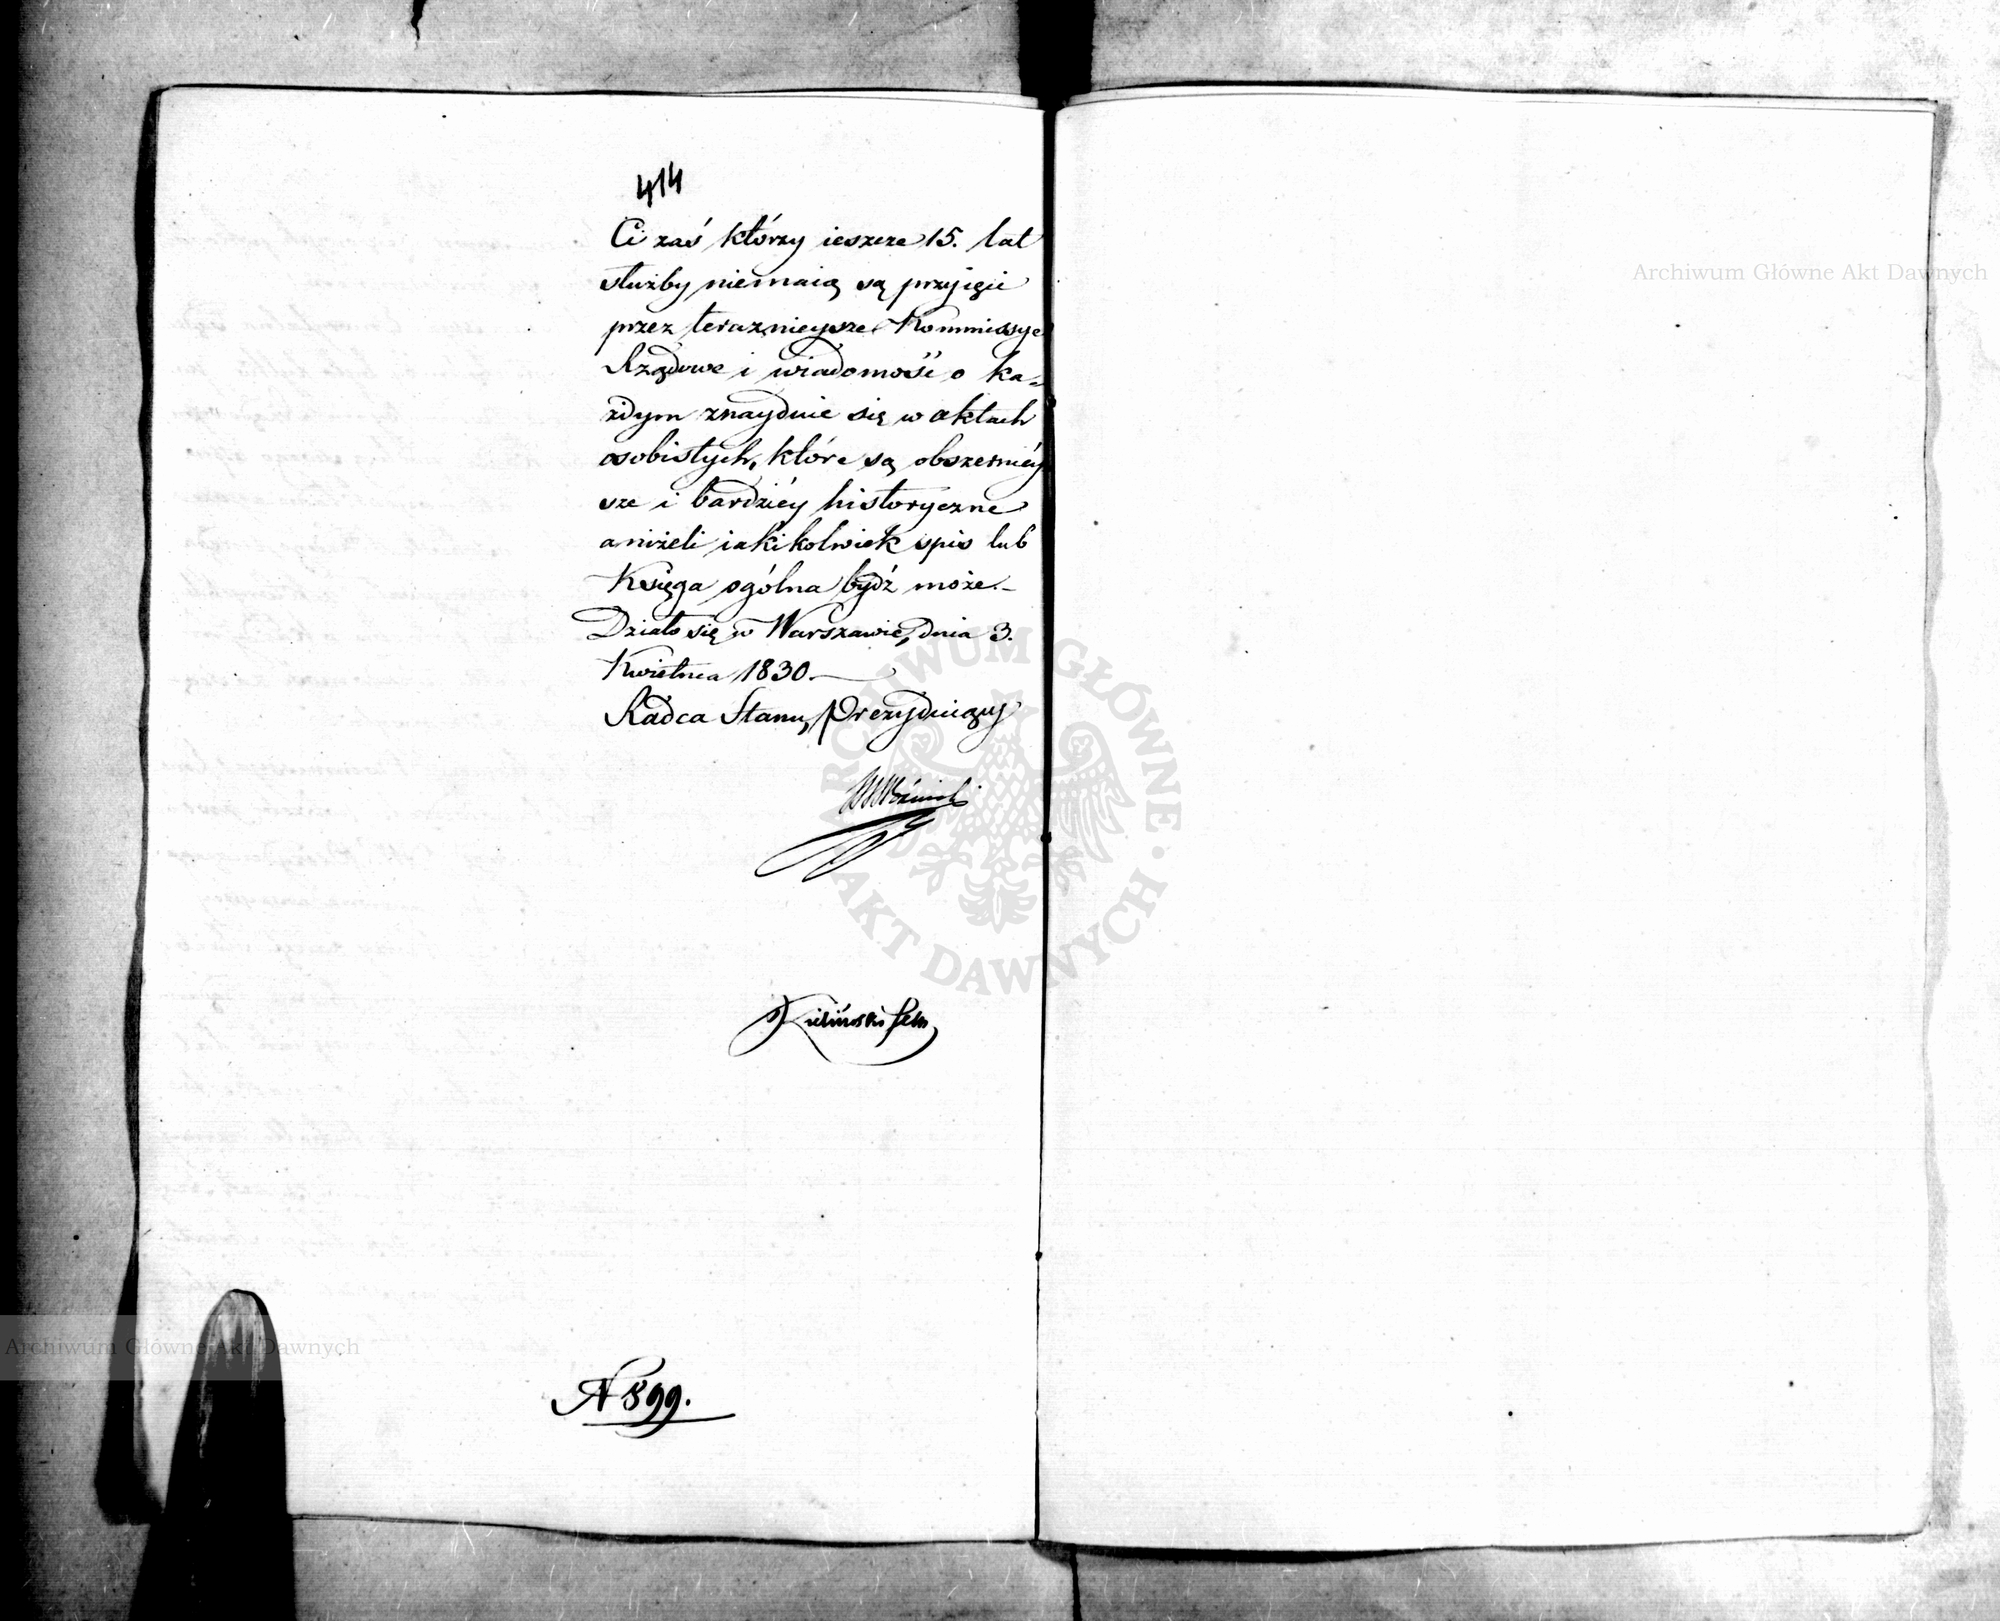 414
Ci zaś którzy ieszcze 15. lat
służby niemaią są przyięci
przez teraznieysze Kommissye
Rządowe i wiadomość o ka-
żdym znayduie się w aktach
osobistych, które są obszerniéy
sze i bardziéy historyczne
aniżeli iakikolwiek spis lub
Księga ogólna bydź może.-
Działo się w Warszawie, dnia 3.
Kwietnia 1830.
Radca Stanu, Prezyduiący
N 899.
Archiwum Główne Akt Dawnych
Archiwum Główne Akt Dawnych
ARCHIWUM GŁÓWNE AKT DAWNYCH